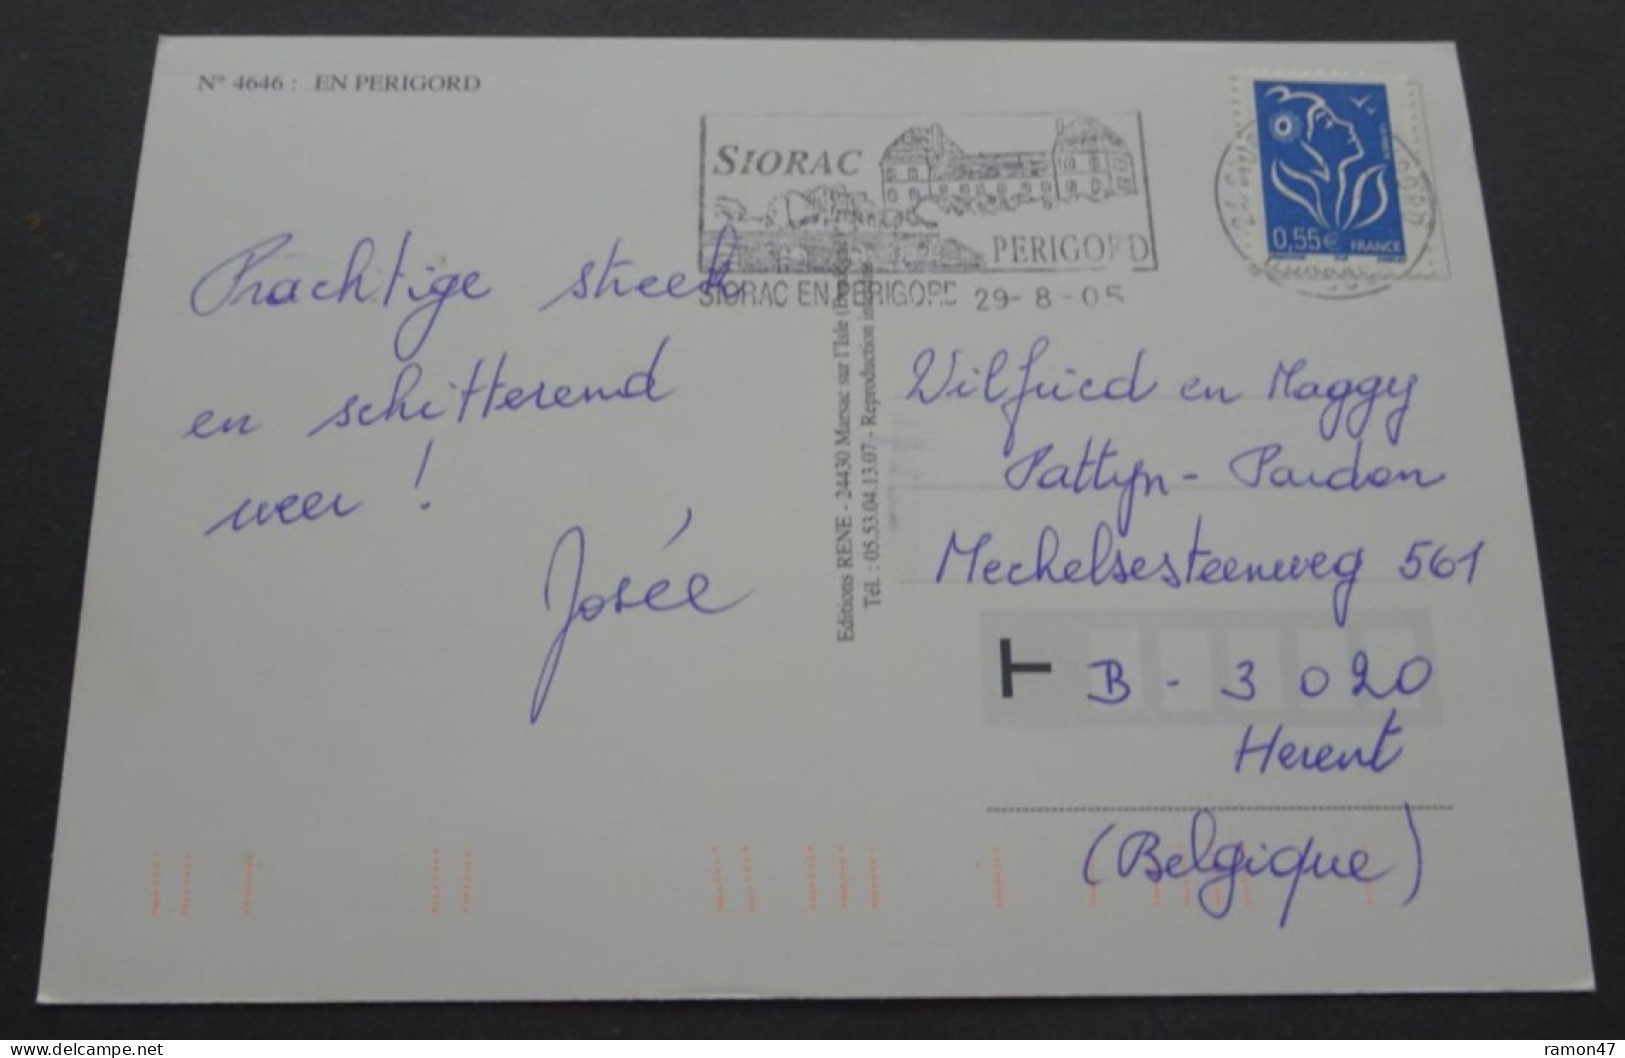 N° 4646 : EN PERIGORD
SIORAC
PERIGORD
SIORAC EN PERIGORD 29-8-05
0,55€ FRANCE
Prachtige streek
en schitterend
weer !
Josée
Editions RENE - 24430 Marsac sur l'Isle
Tél. : 05.53.04.13.07 - Reproduction
Wilfried en Maggy
Pattyn - Pardon
Mechelsesteenweg 561
T B - 3020
Herent
(Belgique)
ramon47